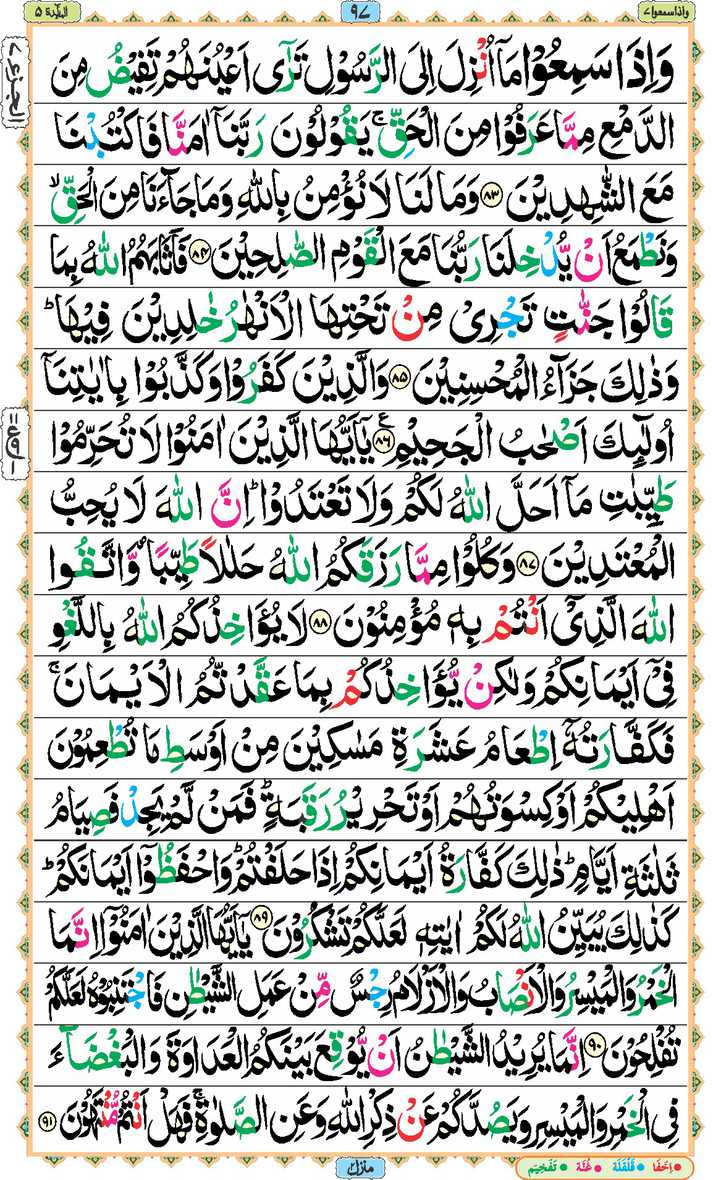 واذا سمعوا ٧
٩٧
المآئدة ٥
وَاِذَا سَمِعُوْا مَاۤ اُنْزِلَ اِلَى الرَّسُوْلِ تَرٰۤى اَعْیُنَهُمْ تَفِیْضُ مِنَ
الدَّمْعِ مِمَّا عَرَفُوْا مِنَ الْحَقِّ ۚ یَقُوْلُوْنَ رَبَّنَاۤ اٰمَنَّا فَاكْتُبْنَا
مَعَ الشّٰهِدِیْنَ ﴿٨٣﴾ وَمَا لَنَا لَا نُؤْمِنُ بِاللّٰهِ وَمَا جَآءَنَا مِنَ الْحَقِّ ۙ
وَنَطْمَعُ اَنْ یُّدْخِلَنَا رَبُّنَا مَعَ الْقَوْمِ الصّٰلِحِیْنَ ﴿٨٤﴾ فَاَثَابَهُمُ اللّٰهُ بِمَا
قَالُوْا جَنّٰتٍ تَجْرِیْ مِنْ تَحْتِهَا الْاَنْهٰرُ خٰلِدِیْنَ فِیْهَا ؕ
وَذٰلِكَ جَزَآءُ الْمُحْسِنِیْنَ ﴿٨٥﴾ وَالَّذِیْنَ كَفَرُوْا وَكَذَّبُوْا بِاٰیٰتِنَاۤ
اُولٰٓئِكَ اَصْحٰبُ الْجَحِیْمِ ﴿٨٦﴾ یٰۤاَیُّهَا الَّذِیْنَ اٰمَنُوْا لَا تُحَرِّمُوْا
طَیِّبٰتِ مَاۤ اَحَلَّ اللّٰهُ لَكُمْ وَلَا تَعْتَدُوْا ؕ اِنَّ اللّٰهَ لَا یُحِبُّ
الْمُعْتَدِیْنَ ﴿٨٧﴾ وَكُلُوْا مِمَّا رَزَقَكُمُ اللّٰهُ حَلٰلًا طَیِّبًا ۪ وَّاتَّقُوا
اللّٰهَ الَّذِیْۤ اَنْتُمْ بِهٖ مُؤْمِنُوْنَ ﴿٨٨﴾ لَا یُؤَاخِذُكُمُ اللّٰهُ بِاللَّغْوِ
فِیْۤ اَیْمَانِكُمْ وَلٰكِنْ یُّؤَاخِذُكُمْ بِمَا عَقَّدْتُّمُ الْاَیْمَانَ ۚ
فَكَفَّارَتُهٗۤ اِطْعَامُ عَشَرَةِ مَسٰكِیْنَ مِنْ اَوْسَطِ مَا تُطْعِمُوْنَ
اَهْلِیْكُمْ اَوْ كِسْوَتُهُمْ اَوْ تَحْرِیْرُ رَقَبَةٍ ؕ فَمَنْ لَّمْ یَجِدْ فَصِیَامُ
ثَلٰثَةِ اَیَّامٍ ؕ ذٰلِكَ كَفَّارَةُ اَیْمَانِكُمْ اِذَا حَلَفْتُمْ ؕ وَاحْفَظُوْۤا اَیْمَانَكُمْ ؕ
كَذٰلِكَ یُبَیِّنُ اللّٰهُ لَكُمْ اٰیٰتِهٖ لَعَلَّكُمْ تَشْكُرُوْنَ ﴿٨٩﴾ یٰۤاَیُّهَا الَّذِیْنَ اٰمَنُوْۤا اِنَّمَا
الْخَمْرُ وَالْمَیْسِرُ وَالْاَنْصَابُ وَالْاَزْلَامُ رِجْسٌ مِّنْ عَمَلِ الشَّیْطٰنِ فَاجْتَنِبُوْهُ لَعَلَّكُمْ
تُفْلِحُوْنَ ﴿٩٠﴾ اِنَّمَا یُرِیْدُ الشَّیْطٰنُ اَنْ یُّوْقِعَ بَیْنَكُمُ الْعَدَاوَةَ وَالْبَغْضَآءَ
فِی الْخَمْرِ وَالْمَیْسِرِ وَیَصُدَّكُمْ عَنْ ذِكْرِ اللّٰهِ وَعَنِ الصَّلٰوةِ ۚ فَهَلْ اَنْتُمْ مُّنْتَهُوْنَ ﴿٩١﴾
منزل ٢
اِخفَا • قَلقَلَة • غُنَّة • تَفخِیم •